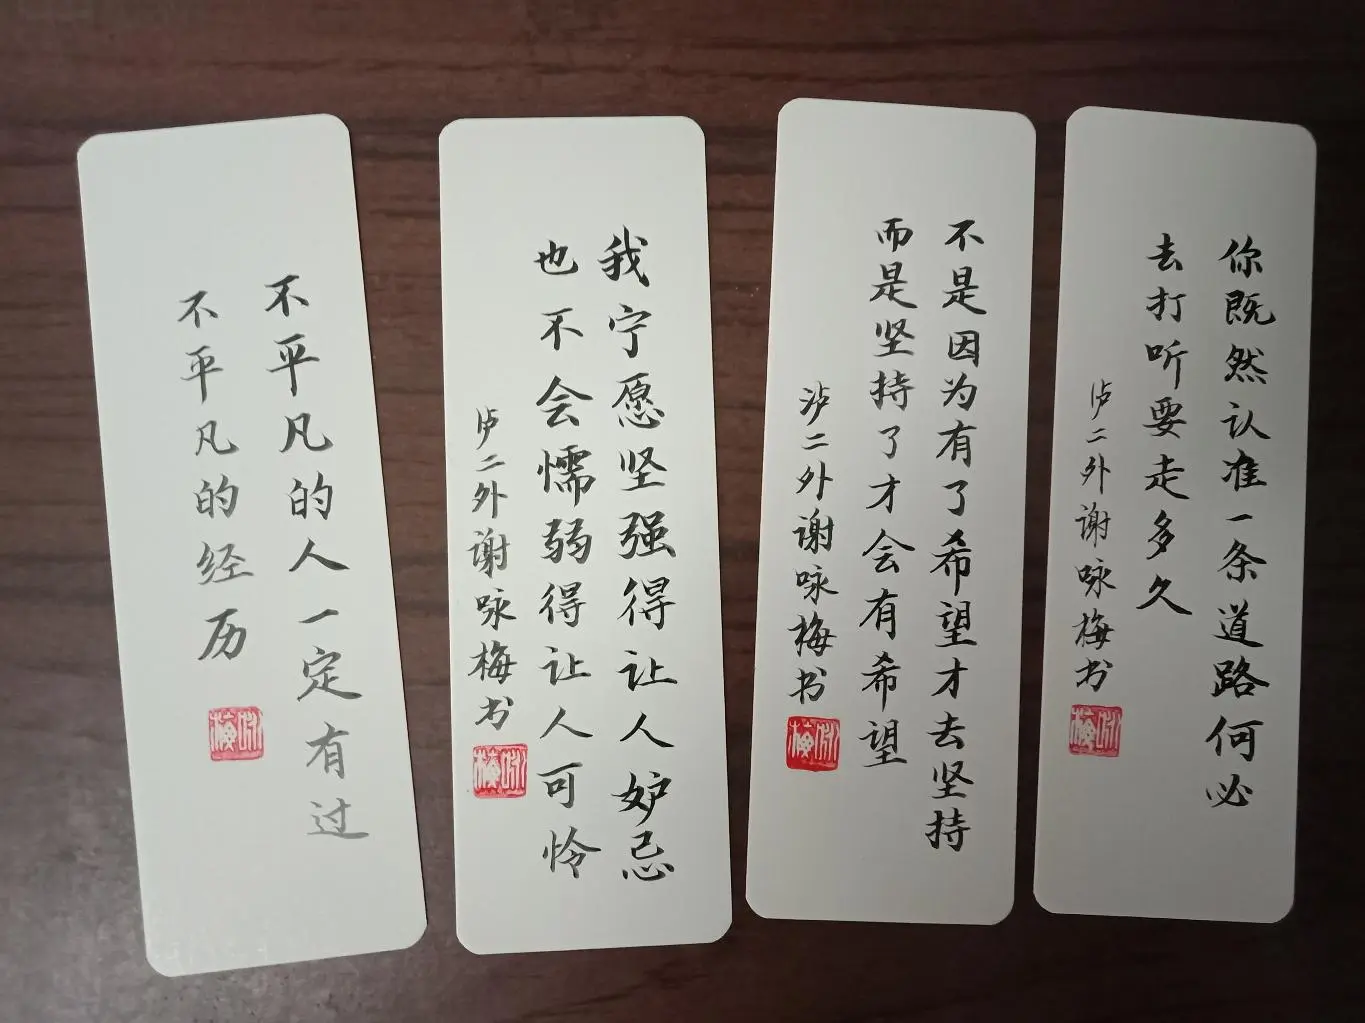 不平凡的人一定有过
不平凡的经历
我宁愿坚强得让人妒忌
也不会懦弱得让人可怜
泸二外谢咏梅书
咏梅
不是因为有了希望才去坚持
而是坚持了才会有希望
泸二外谢咏梅书
咏梅
你既然认准一条道路何必
去打听要走多久
泸二外谢咏梅书
咏梅